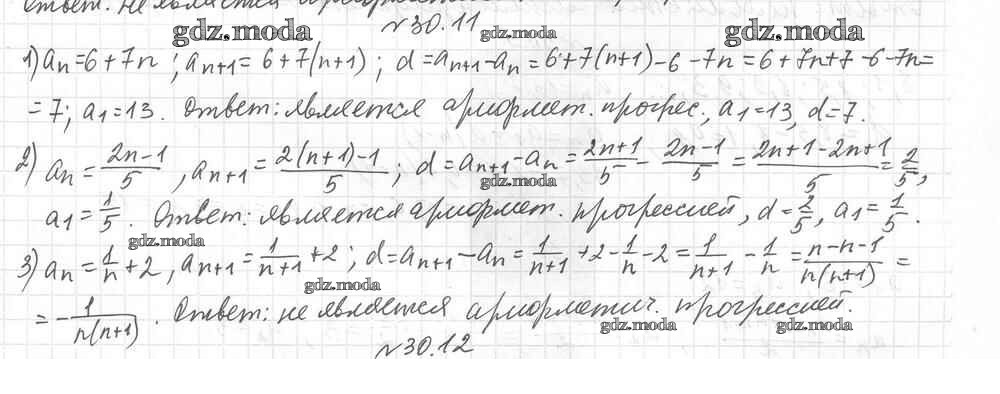 Ответ: не является
№30.11
gdz.moda gdz.moda gdz.moda
1) aₙ=6+7n; aₙ₊₁=6+7(n+1); d=aₙ₊₁-aₙ=6+7(n+1)-6-7n=6+7n+7-6-7n=
=7; a₁=13. Ответ: является арифмет. прогрес., a₁=13, d=7.
2) aₙ=(2n-1)/5, aₙ₊₁=(2(n+1)-1)/5; d=aₙ₊₁-aₙ=(2n+1)/5-(2n-1)/5=(2n+1-2n+1)/5=2/5,
gdz.moda
a₁=1/5. Ответ: является арифмет. прогрессией, d=2/5, a₁=1/5.
gdz.moda
3) aₙ=1/n+2, aₙ₊₁=1/(n+1)+2; d=aₙ₊₁-aₙ=1/(n+1)+2-1/n-2=1/(n+1)-1/n=(n-n-1)/(n(n+1))=
gdz.moda
=-1/(n(n+1)). Ответ: не является арифметич. прогрессией.
gdz.moda gdz.moda
№30.12